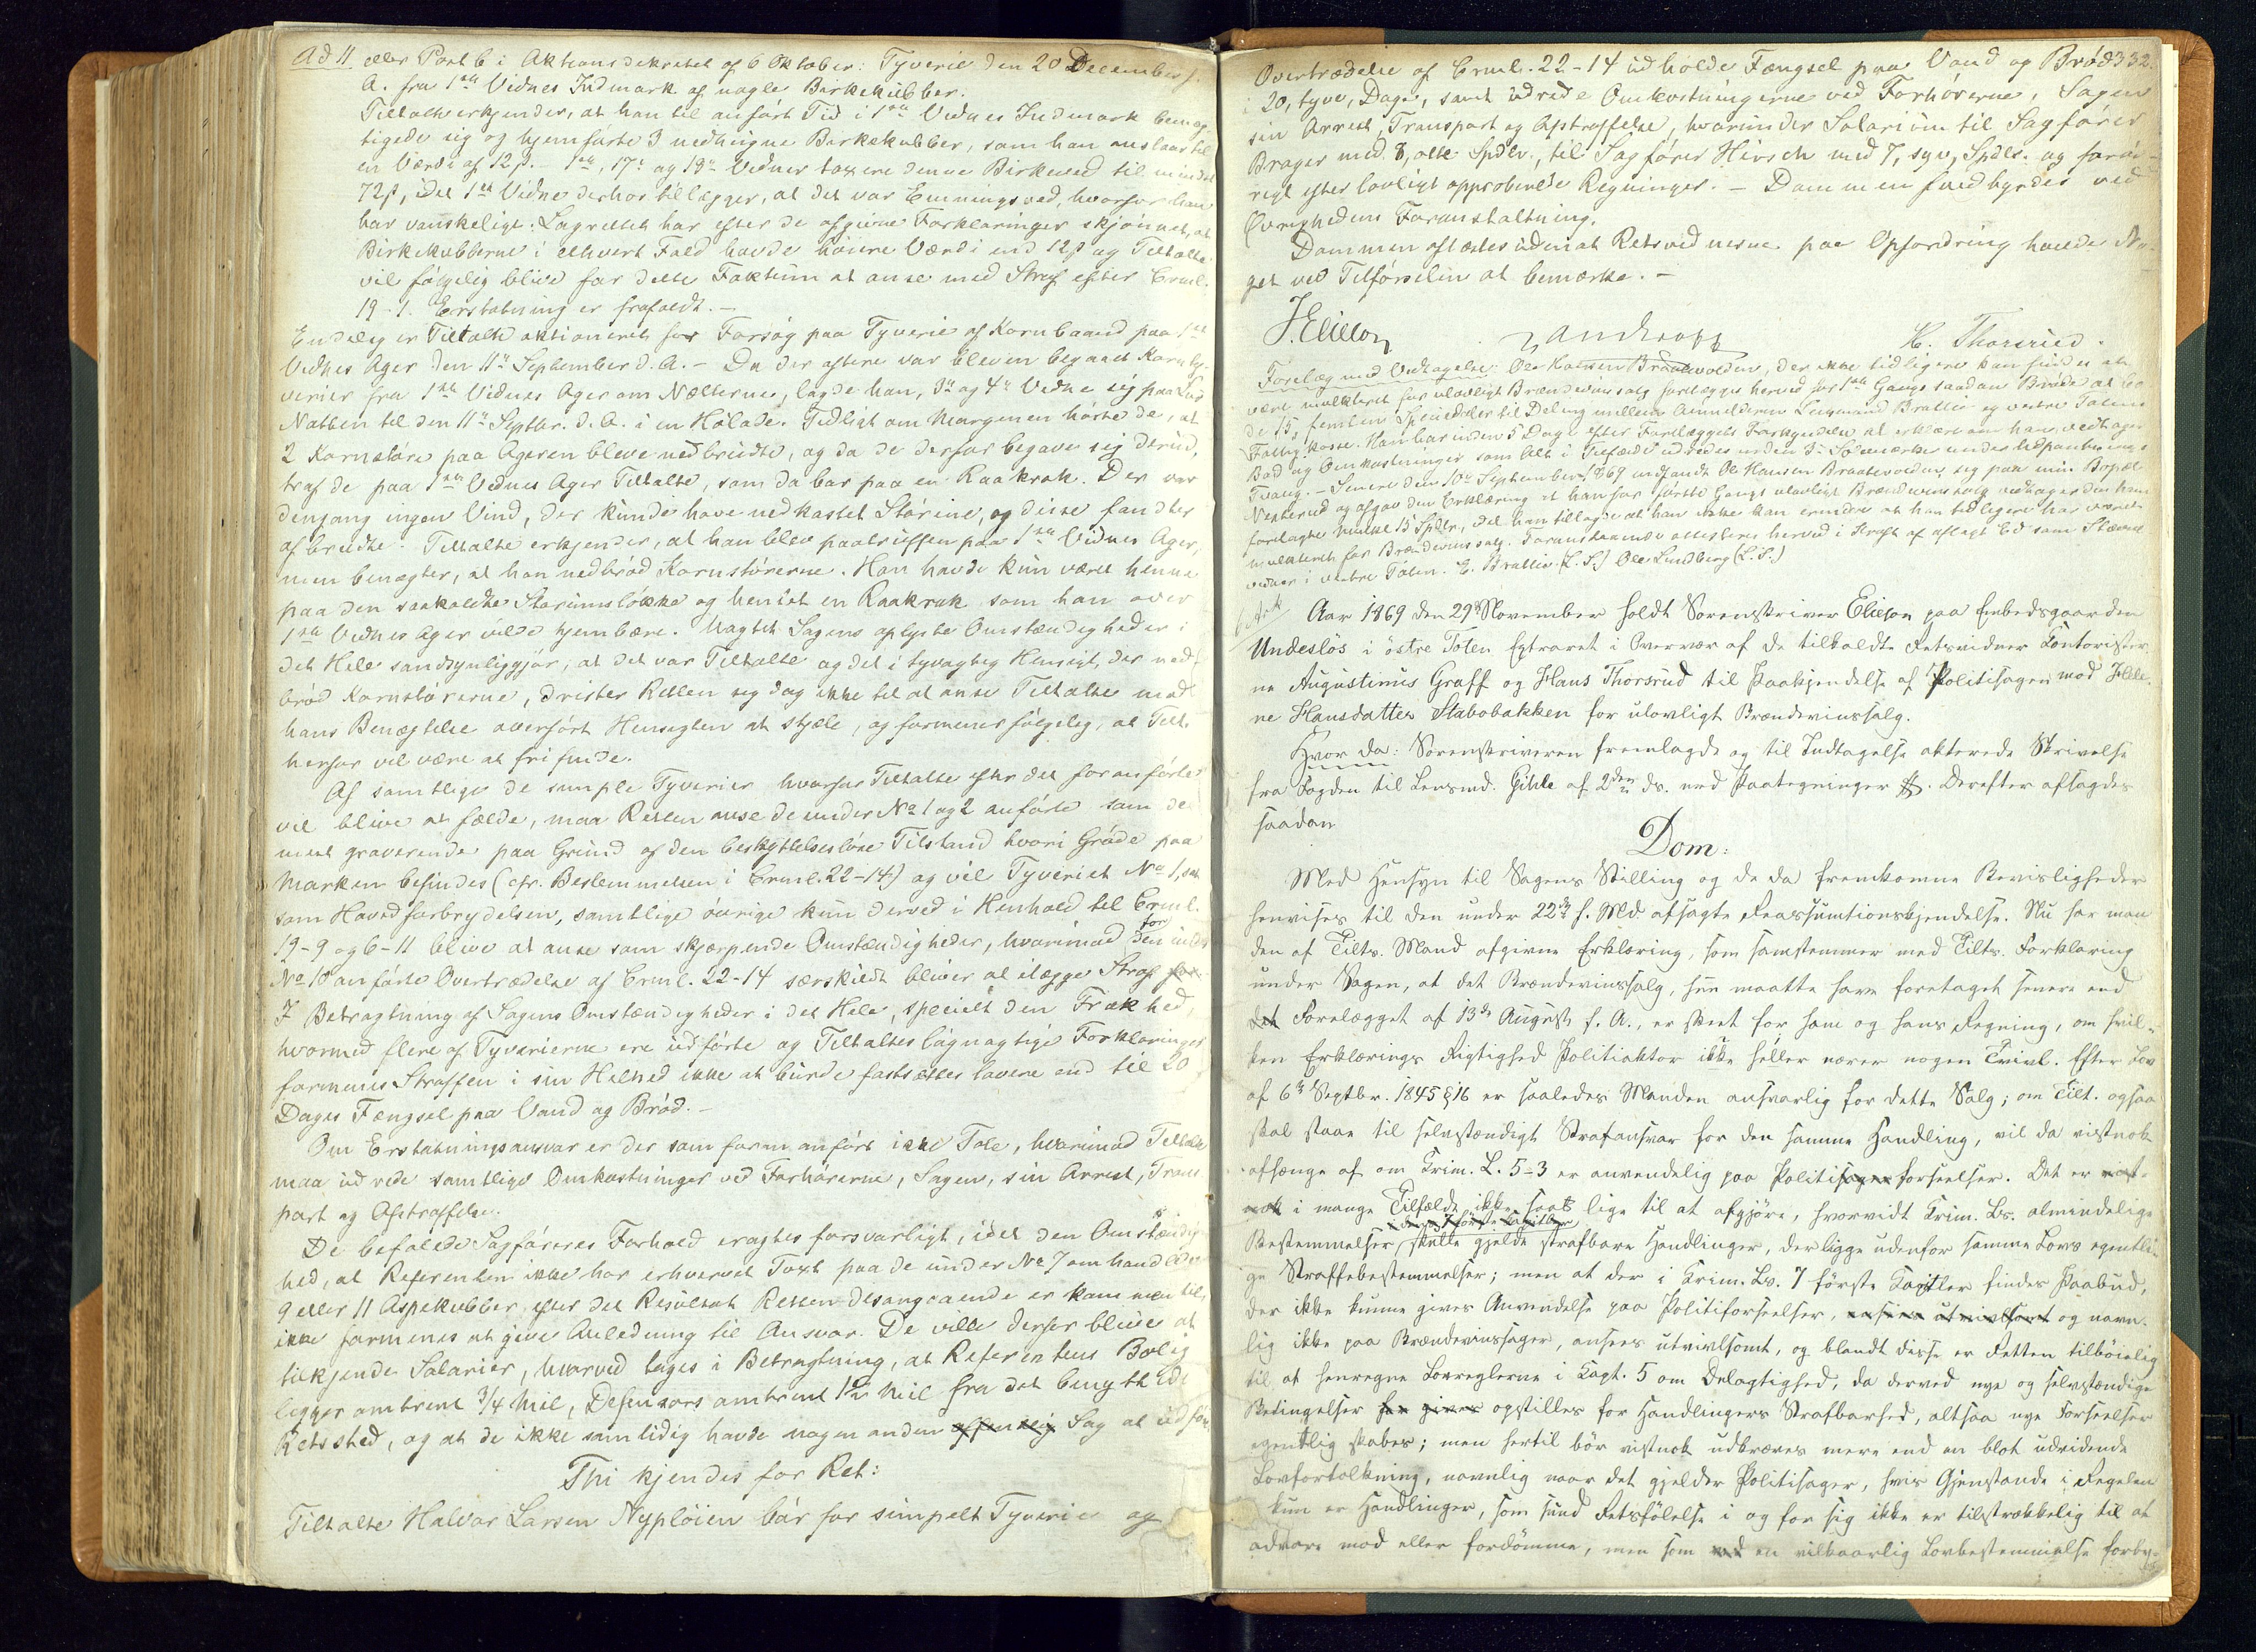 Ad 11 eller Post 6 i Aktionsdekretet af 6 Oktober: Tyverie den 20 December f.
A. fra 1ste Vidnes Indmark af nogle Birkekubber.
Tiltalte erkjender, at han til anført Tid i 1ste Vidnes Indmark bemæg-
tigede sig og hjemførte 3 nedhugne Birkekubber, som han anslaar til
en Værdi af 12 ß. 1ste, 17de og 19de Vidner taxere denne Birkeved til mindst
72ß, idet 1ste Vidne derhos tillægger, at det var Emningsved, hvorfor han
har vanskeligt. Lagrettet har efter de afgivne Forklaringer skjønnet, at
Birkekubberne i ethvert Fald havde høiere Værdi end 12ß og Tiltalte
vil følgelig blive for dette Faktum at anse med Straf efter Crml.
19-1. Erstatning er frafaldt. -
Endelig er Tiltalte aktioneret for Forsøg paa Tyverie af Kornbaand paa 1ste
Vidnes Ager den 11te September d. A. - Da der oftere var bleven begaaet Korn ty-
verier fra 1ste Vidnes Ager om Nætterne, lagde han, 3de og 4de Vidne sig paa Lur
Natten til den 11te Septbr. d. A. i en Hølade. Tidligt om Morgenen hørte de, at
2 Kornstøre paa Ageren bleve nedbrudte, og da de derfor begave sig derud,
traf de paa 1ste Vidnes Ager Tiltalte, som da bar paa en Raakrak. Der var
dengang ingen Vind, der kunde have nedkastet Størene, og disse fandtes
afbrudte. Tiltalte erkjender, at han blev paatruffen paa 1ste Vidnes Ager,
men benægter, at han nedbrød Kornstørerne. Han havde kun været henne
paa den saakaldte Størumsløkke og hentet en Raakrak som han over
1ste Vidnes Ager vilde hjembære. Uagtet Sagens oplyste Omstændigheder i
det Hele sandsynliggjør, at det var Tiltalte og det i tyvagtig Hensigt, der ned-
brød Kornstørerne, drister Retten sig dog ikke til at anse Tiltalte mod
hans Benægtelse overført Hensigten at stjæle, og formener følgelig, at Tilt.
herfor vil være at frifinde.
Af samtlige de simple Tyverier hvorfor Tiltalte efter det foranførte
vil blive at fælde, maa Retten anse de under No 1 og 2 anførte som de
mest graverende paa Grund af den beskyttelsesløse Tilstand hvori Grøde paa
Marken befindes (cfr. Bestemmelsen i Crml. 22-14) og vil Tyveriet No 1, sat
som Hovedforbrydelsen, samtlige øvrige kun derved i Henhold til Crml.
19-9 og 6-11 blive at anse som skjærpende Omstændigheder, hvorimod for den under
No 10 anførte Overtrædelse af Crml. 22-14 særskildt bliver at ilægge Straf for
I Betragtning af Sagens Omstændigheder i det Hele, specielt den Frækhed,
hvormed flere af Tyverierne ere udførte og Tiltaltes løgnagtige Forklaringer
formenes Straffen i sin Helhed ikke at burde fastsættes lavere end til 20
Dages Fængsel paa Vand og Brød. -
Om Erstatningsansvar er der som foran anført ikke Tale, hvorimod Tiltalte
maa udrede samtlige Omkostninger ved Forhørerne, Sagen, sin Arrest, Trans
port og Afstraffelse.
De befalede Sagføreres Forhold eragtes forsvarligt, idet den Omstændig-
hed, at Referenten ikke har erhvervet Taxt paa de under No 7 omhandlede
9 eller 11 Aspekubber, efter det Resultat Retten desangaaende er kommen til,
ikke formenes at give Anledning til Ansvar. De ville derfor blive at
tilkjende Salarier, hvorved tages i Betragtning, at Referentens Bolig
ligger omtrent 3/4 Mil, Defensors omtrent 1 1/2 Mil fra det benyttede
Retssted, og at de ikke samtidig havde nogen anden offentlig Sag at udføre.
Thi kjendes for Ret:
Tiltalte Halvor Larsen Nypløien bør for simpelt Tyverie og
Overtrædelse af Crml. 22-14 udholde Fængsel paa Vand og Brød 332.
i 20, tyve, Dage, samt udrede Omkostningerne ved Forhørerne, Sagen
sin Arrest, Transport og Afstraffelse, hvorunder Salarium til Sagfører
Brager med 8, otte Spdlr., til Sagfører Hirsch med 7, syv, Spdlr. og forøv-
rigt efter lovligt approberede Regninger. - Dommen fuldbyrdes ved
Øvrighedens Foranstaltning.
Dommen oplæstes uden at Retsvidnerne paa Opfordring havde No-
get ved Tilførselen at bemærke. -
J. Ellefson
H. Thorsrud.
Forelæg med Vedtagelse: Ole Hansen Braatevolden, der ikke tidligere kan sees at
være mulkteret for ulovligt Brændevinssalg forelægges herved for 1ste Gangs saadan Brøde at bø
de 15, femten Speciedaler til Deling mellem Anmelderen Lensmand Brattlie og vestre Totens
Fattigkasse. Han har inden 5 Dage efter Forelæggets Forkyndelse at erklære om han vedtager
Bod og Omkostninger som alt i Tilfælde udredes inden 3 Solemærker under Udpantnings
Tvang. - Senere den 10de September 1869 indfandt Ole Hansen Braatevolden sig paa min Bopæl
Vesterud og afgav den Erklæring at han for første Gangs ulovligt Brændevinssalg vedtager den ham
forelagte Mulkt 15 Spdlr, idet han tillagde at han ikke kan erindre at han tidligere har været
mulkteret for Brændevinssalg. Foranstaaende attesteres herved i Kraft af aflagt Ed som Stævne
vidner i vestre Toten. E. Brattlie (L.S.) Ole Lundberg (L.S.)
Aar 1869 den 29de November holdt Sorenskriver Ellefson paa Embedsgaarden
Undeslös i östre Toten Extraret i Overvær af de tilkaldte Retsvidner Kontorister-
ne Augustinus Graff og Hans Thorsrud til Paakjendelse af Politisagen mod Hele-
ne Hansdatter Stabobakken for ulovligt Brændevinssalg.
Hvor da: Sorenskriveren fremlagde og til Indtagelse akterede Skrivelse
fra Fogden til Lensmd. Gihle af 2den ds. med Paategninger #. Derefter afsagdes
saadan
Dom:
Med Hensyn til Sagens Stilling og de da fremkomne Bevisligheder
henvises til den under 22de f. Md afsagte Reassumtionskjendelse. Nu har man
den af Tilts. Mand afgivne Erklæring, som samstemmer med Tilts. Forklaring
under Sagen, at det Brændevinssalg, hun maatte have foretaget senere end
det Forelægget af 13de August f. A., er skeet for ham og hans Regning, om hvil-
ken Erklærings Rigtighed Politiaktor ikke heller nærer nogen Tvivl. Efter Lov
af 6te Septbr. 1845 § 16 er saaledes Manden ansvarlig for dette Salg; om Tilt. ogsaa
skal staae til selvstændigt Strafansvar for den samme Handling, vil da vistnok
afhænge af om Krim. L. 5-3 er anvendelig paa Politisagen forseelser. Det er vist-
nok i mange Tilfælde ikke saa lige til at afgjøre, hvorvidt Krim. Ls. almindelige
i dens 7 første Kapitler
Bestemmelser skulle gjelde strafbare Handlinger, der ligge udenfor samme Lovs egentli-
ge Straffebestemmelser; men at der i Krim. Ls. 7 første Kapitler findes Paabud,
der ikke kunne gives Anvendelse paa Politiforseelser, ansees utvivlsomt og navn-
lig ikke paa Brændevinssager, ansees utvivlsomt, og blandt disse er Retten tilbøielig
til at henregne Lovreglerne i Kapt. 5 om Delagtighed, da derved nye og selvstændige
Betingelser for gives opstilles for Handlingers Strafbarhed, altsaa nye Forseelser
egentlig skabes; men hertil bör vistnok udkræves mere end en blot udvidende
Lovfortolkning, navnlig naar det gjelder Politisager, hvis Gjenstande i Regelen
kun er Handlinger, som sund Retsfölelse i og for sig ikke er tilstrækkelig til at
advare mod eller fordömme, men som ved en vilkaarlig Lovbestemmelse forby-